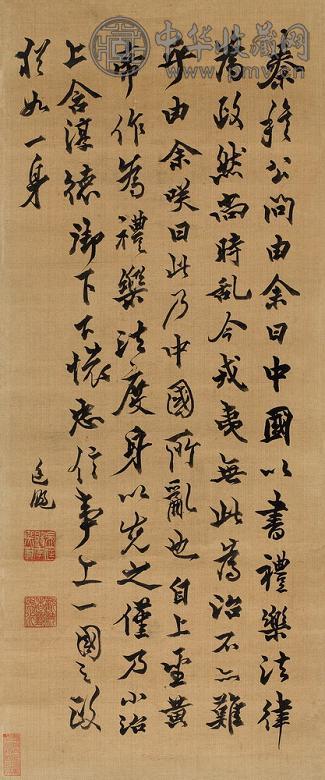 中华收藏网
秦穆公問由余曰中國以書禮樂法律
為政然尚時乱今戎夷無此為治不亦難
乎由余咲曰此乃中國所亂也自上聖黄
帝作為禮樂法度身以先之僅乃小治
上含淳德御下下懷忠信事上一國之政
猶如一身